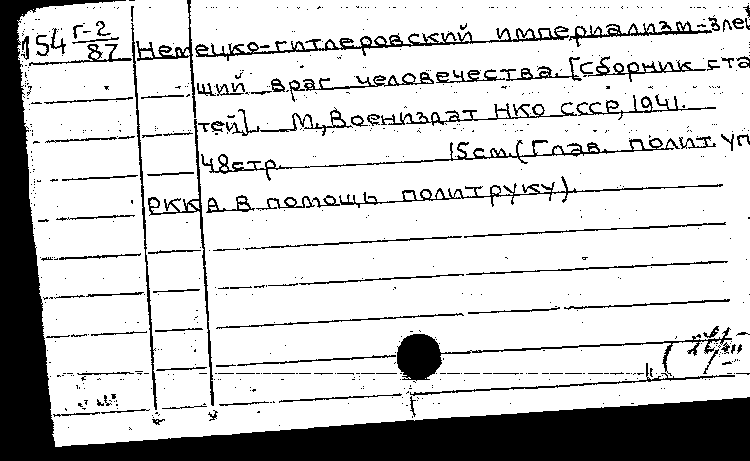 154 Г-2/87 Немецко-гитлеровский империализм-злей
ший враг человечества. [Сборник ста
тей]. М., Воениздат НКО СССР, 1941.
48стр. 15см. (Глав. полит. уп
РККА. В помощь политруку).